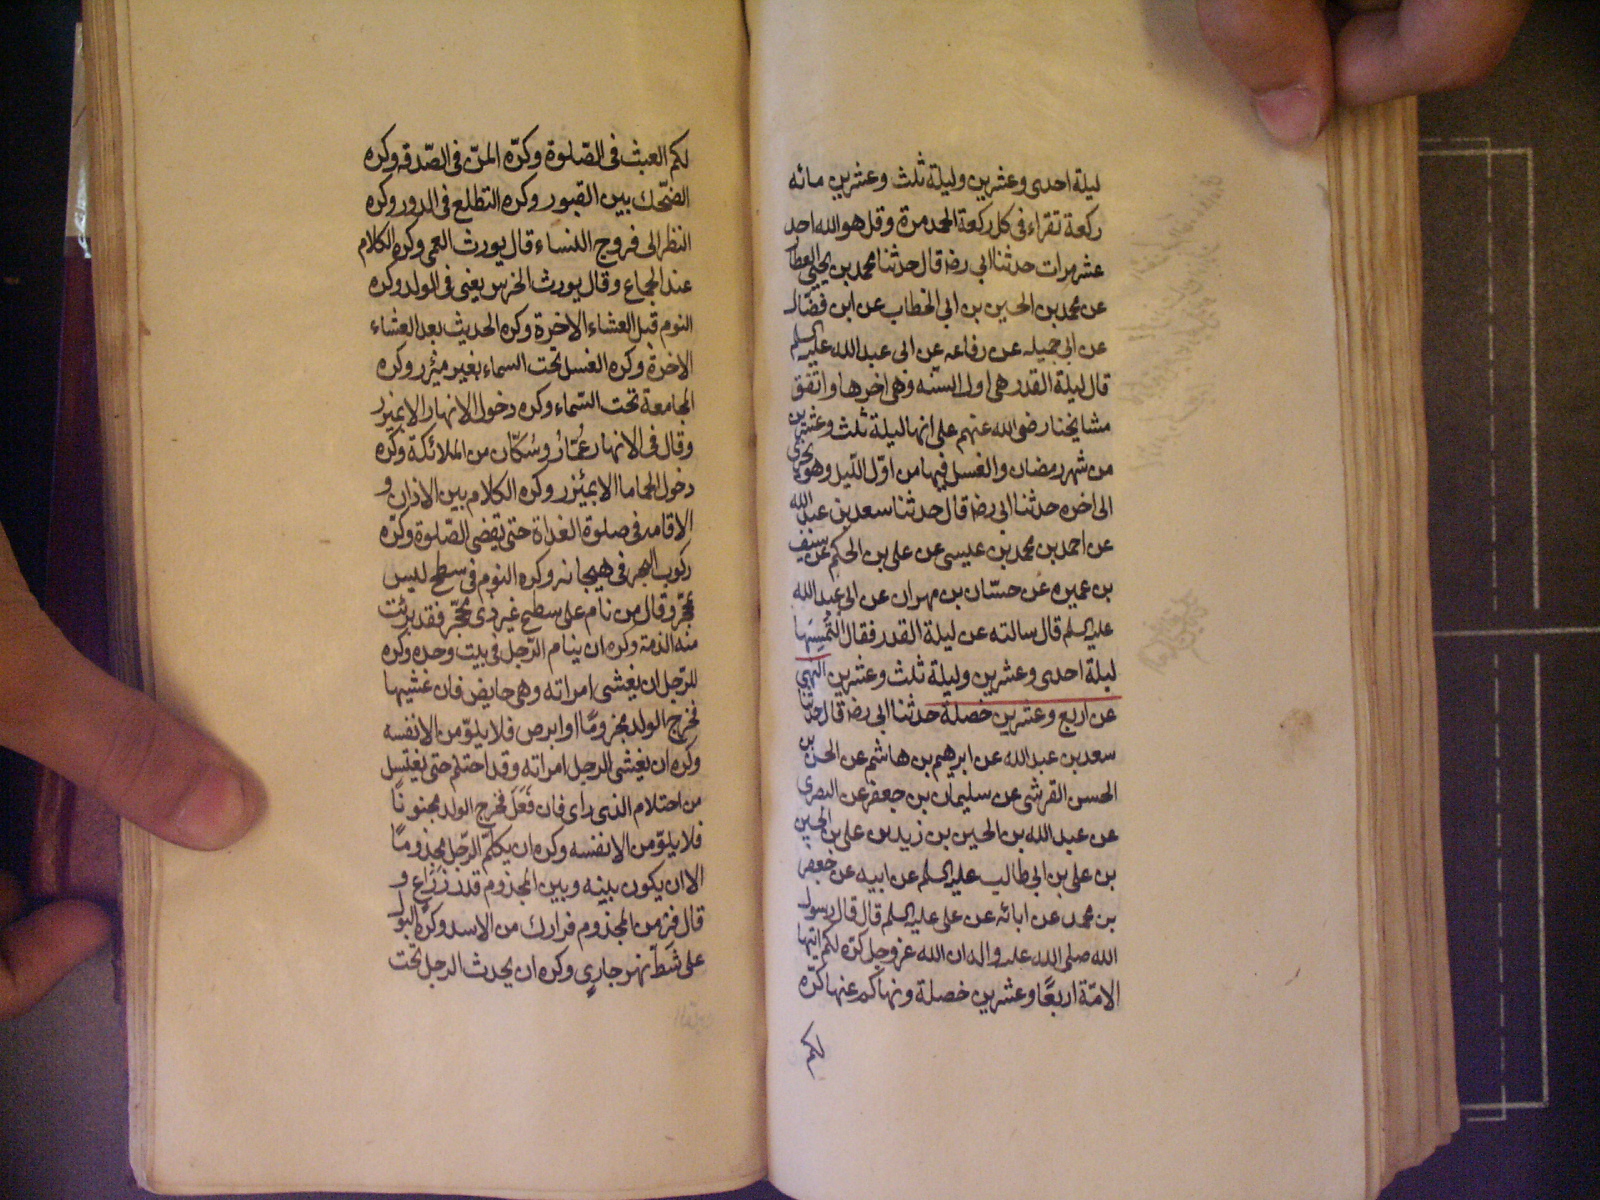 ليلة احدى وعشرين وليلة ثلث وعشرين مائه
ركعة تقراء فى كل ركعة الحمد مرة وقل هو الله احد
عشر مرات حدثنا ابى رضه قال حدثنا محمد بن يحيى العطار
عن محمد بن الحسين بن ابى الخطاب عن ابن فضال
عن ابى جميله عن رفاعه عن ابى عبد الله عليه السلم
قال ليلة القدر هى اول السنه وهى اخرها واتفق
مشايخنا رضى الله عنهم على انها ليلة ثلث وعشرين
من شهر رمضان والغسل فيها من اول الليل وهو يجزى
الى اخره حدثنا ابى رضه قال حدثنا سعد بن عبد الله
عن احمد بن محمد بن عيسى عن على بن الحكم عن سيف
بن عميره عن حسان بن مهران عن ابى عبد الله
عليه السلم قال سالته عن ليلة القدر فقال التمسها
ليلة احدى وعشرين وليلة ثلث وعشرين النهى
عن اربع وعشرين خصلة حدثنا ابى رضه قال حدثنا
سعد بن عبد الله عن ابرهيم بن هاشم عن الحسن بن
الحسن القرشى عن سليمان بن جعفر عن البصرى
عن عبد الله بن الحسين بن زيد بن على بن الحسين
بن على بن ابى طالب عليه السلم عن ابيه عن جعفر
بن محمد عن ابائه عن على عليه السلم قال قال رسول
الله صلى الله عليه واله ان الله عز وجل كره لكم ايتها
الامّة اربعًا وعشرين خصلة ونهاكم عنها كرّه
لكم
لكم العبث فى الصّلوة وكرّه المنّ فى الصّدقه وكره
الضّحك بين القبور وكره التطلع فى الدور وكره
النظر الى فروج النساء قال يورث العمى وكره الكلام
عند الجماع وقال يورث الخرس يعنى فى الولد وكره
النوم قبل العشاء الاخرة وكره الحديث بعد العشاء
الاخرة وكره الغسل تحت السماء بغير ميئزر وكره
المجامعة تحت السّماء وكره دخول الانهار الا بميزر
وقال فى الانهار عُمّارُ وسُكّان من الملائكة وكره
دخول الحماما الا بميئزر وكره الكلام بين الاذان و
الاقامه فى صلوة الغداة حتى تقضى الصّلوة وكرّه
ركوب البحر فى هيجانه وكره النوم فى سطح ليس
بمحجّر وقال من نام على سطح غير ذى محجّر فقد برئت
منه الذمة وكره ان ينام الرّجل فى بيت وحده وكره
للرّجل ان يغشى امراته وهى حايض فان غشيها
فخرج الولد مجزومًا او ابرص فلا يلومّن الا نفسه
وكره ان يغشى الرجل امراته وقد احتلم حتى يغتسل
من احتلام الذى راى فان فَعَلَ فخرج الولد مجنونًا
فلا يلومّن الا نفسه وكره ان يكلّم الرّجل مجذومًا
الا ان يكون بينه وبين المجذوم قدر ذراع و
قال فرّ من المجذوم فرارك من الاسد وكرّه البول
على شطّ نهر جارى وكره ان يحدث الرجل تحت